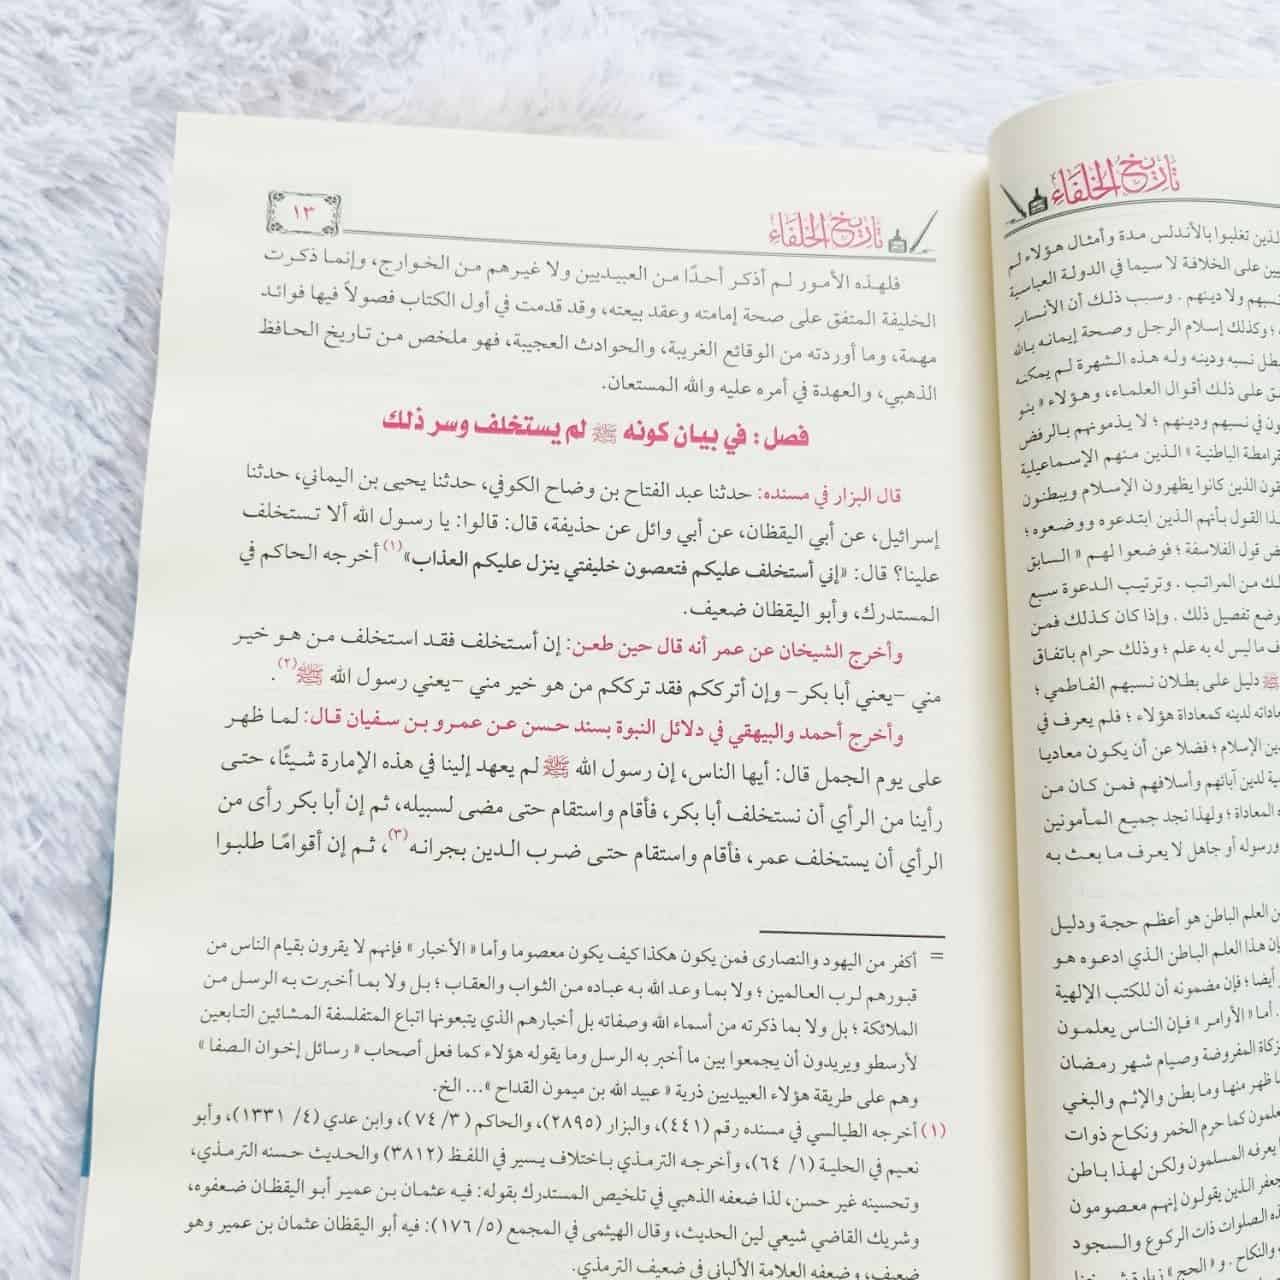 تاريخ الخلفاء
لذين تغلبوا بالأندلس مدة وأمثال هؤلاء لم
يين على الخلافة لا سيما في الدولة العباسية
نسبهم ولا دينهم . وسبب ذلك أن الأنساب
؛ وكذلك إسلام الرجل وصحة إيمانه بالله
بطل نسبه ودينه وله هذه الشهرة لم يمكنه
ق على ذلك أقوال العلماء، وهؤلاء « بنو
ون في نسبهم ودينهم ؛ لا يذمونهم بالرفض
قرامطة الباطنية » الذين منهم الإسماعيلية
قون الذين كانوا يظهرون الإسلام ويبطنون
ذا القول بأنهم الذين ابتدعوه ووضعوه ؛
ض قول الفلاسفة ؛ فوضعوا لهم « السابق
لك من المراتب . وترتيب الدعوة سبع
وضع تفصيل ذلك . وإذا كان كذلك فمن
ف ما ليس له به علم ؛ وذلك حرام باتفاق
ﷺ دليل على بطلان نسبهم الفاطمي ؛
عاداته لدينه كمعاداة هؤلاء ؛ فلم يعرف في
ين الإسلام ؛ فضلا عن أن يكون معاديا
ية لدين آبائهم وأسلافهم فمن كان من
ه المعاداة ؛ ولهذا نجد جميع المأمونين
ورسوله أو جاهل لا يعرف ما بعث به
ن العلم الباطن هو أعظم حجة ودليل
إن هذا العلم الباطن الذي ادعوه هو
أيضا ؛ فإن مضمونه أن للكتب الإلهية
. أما « الأوامر » فإن الناس يعلمون
زكاة المفروضة وصيام شهر رمضان
ا ظهر منها وما بطن والإثم والبغي
علمون كما حرم الخمر ونكاح ذوات
يعرفه المسلمون ولكن لهذا باطن
جعفر الذين يقولون إنهم معصومون
ذه الصلوات ذات الركوع والسجود
والنكاح . و « الحج » زيارة
تاريخ الخلفاء
١٣
فلهذه الأمور لم أذكر أحدًا من العبيديين ولا غيرهم من الخوارج، وإنما ذكرت
الخليفة المتفق على صحة إمامته وعقد بيعته، وقد قدمت في أول الكتاب فصولاً فيها فوائد
مهمة، وما أوردته من الوقائع الغريبة، والحوادث العجيبة، فهو ملخص من تاريخ الحافظ
الذهبي، والعهدة في أمره عليه والله المستعان.
فصل: في بيان كونه ﷺ لم يستخلف وسر ذلك
قال البزار في مسنده: حدثنا عبد الفتاح بن وضاح الكوفي، حدثنا يحيى بن اليماني، حدثنا
إسرائيل، عن أبي اليقظان، عن أبي وائل عن حذيفة، قال: قالوا: يا رسول الله ألا تستخلف
علينا؟ قال: «إني أستخلف عليكم فتعصون خليفتي ينزل عليكم العذاب»(١) أخرجه الحاكم في
المستدرك، وأبو اليقظان ضعيف.
وأخرج الشيخان عن عمر أنه قال حين طعن: إن أستخلف فقد استخلف من هو خير
مني -يعني أبا بكر- وإن أترككم فقد ترككم من هو خير مني -يعني رسول الله ﷺ(٢).
وأخرج أحمد والبيهقي في دلائل النبوة بسند حسن عن عمرو بن سفيان قال: لما ظهر
على يوم الجمل قال: أيها الناس، إن رسول الله ﷺ لم يعهد إلينا في هذه الإمارة شيئًا، حتى
رأينا من الرأي أن نستخلف أبا بكر، فأقام واستقام حتى مضى لسبيله، ثم إن أبا بكر رأى من
الرأي أن يستخلف عمر، فأقام واستقام حتى ضرب الدين بجرانه(٣)، ثم إن أقوامًا طلبوا
= أكفر من اليهود والنصارى فمن يكون هكذا كيف يكون معصوما وأما « الأخبار » فإنهم لا يقرون بقيام الناس من
قبورهم لرب العالمين ؛ ولا بما وعد الله به عباده من الثواب والعقاب ؛ بل ولا بما أخبرت به الرسل من
الملائكة ؛ بل ولا بما ذكرته من أسماء الله وصفاته بل أخبارهم الذي يتبعونها اتباع المتفلسفة المشائين التابعين
لأرسطو ويريدون أن يجمعوا بين ما أخبر به الرسل وما يقوله هؤلاء كما فعل أصحاب « رسائل إخوان الصفا »
وهم على طريقة هؤلاء العبيديين ذرية « عبيد الله بن ميمون القداح »... الخ.
(١) أخرجه الطيالسي في مسنده رقم (٤٤١)، والبزار (٢٨٩٥)، والحاكم (٣/ ٧٤)، وابن عدي (٤/ ١٣٣١)، وأبو
نعيم في الحلية (١/ ٦٤)، وأخرجه الترمذي باختلاف يسير في اللفظ (٣٨١٢) والحديث حسنه الترمذي،
وتحسينه غير حسن، لذا ضعفه الذهبي في تلخيص المستدرك بقوله: فيه عثمان بن عمير أبو اليقظان ضعفوه،
وشريك القاضي شيعي لين الحديث، وقال الهيثمى في المجمع (٥/ ١٧٦): فيه أبو اليقظان عثمان بن عمير وهو
ضعيف، وضعفه العلامة الألباني في ضعيف الترمذي.